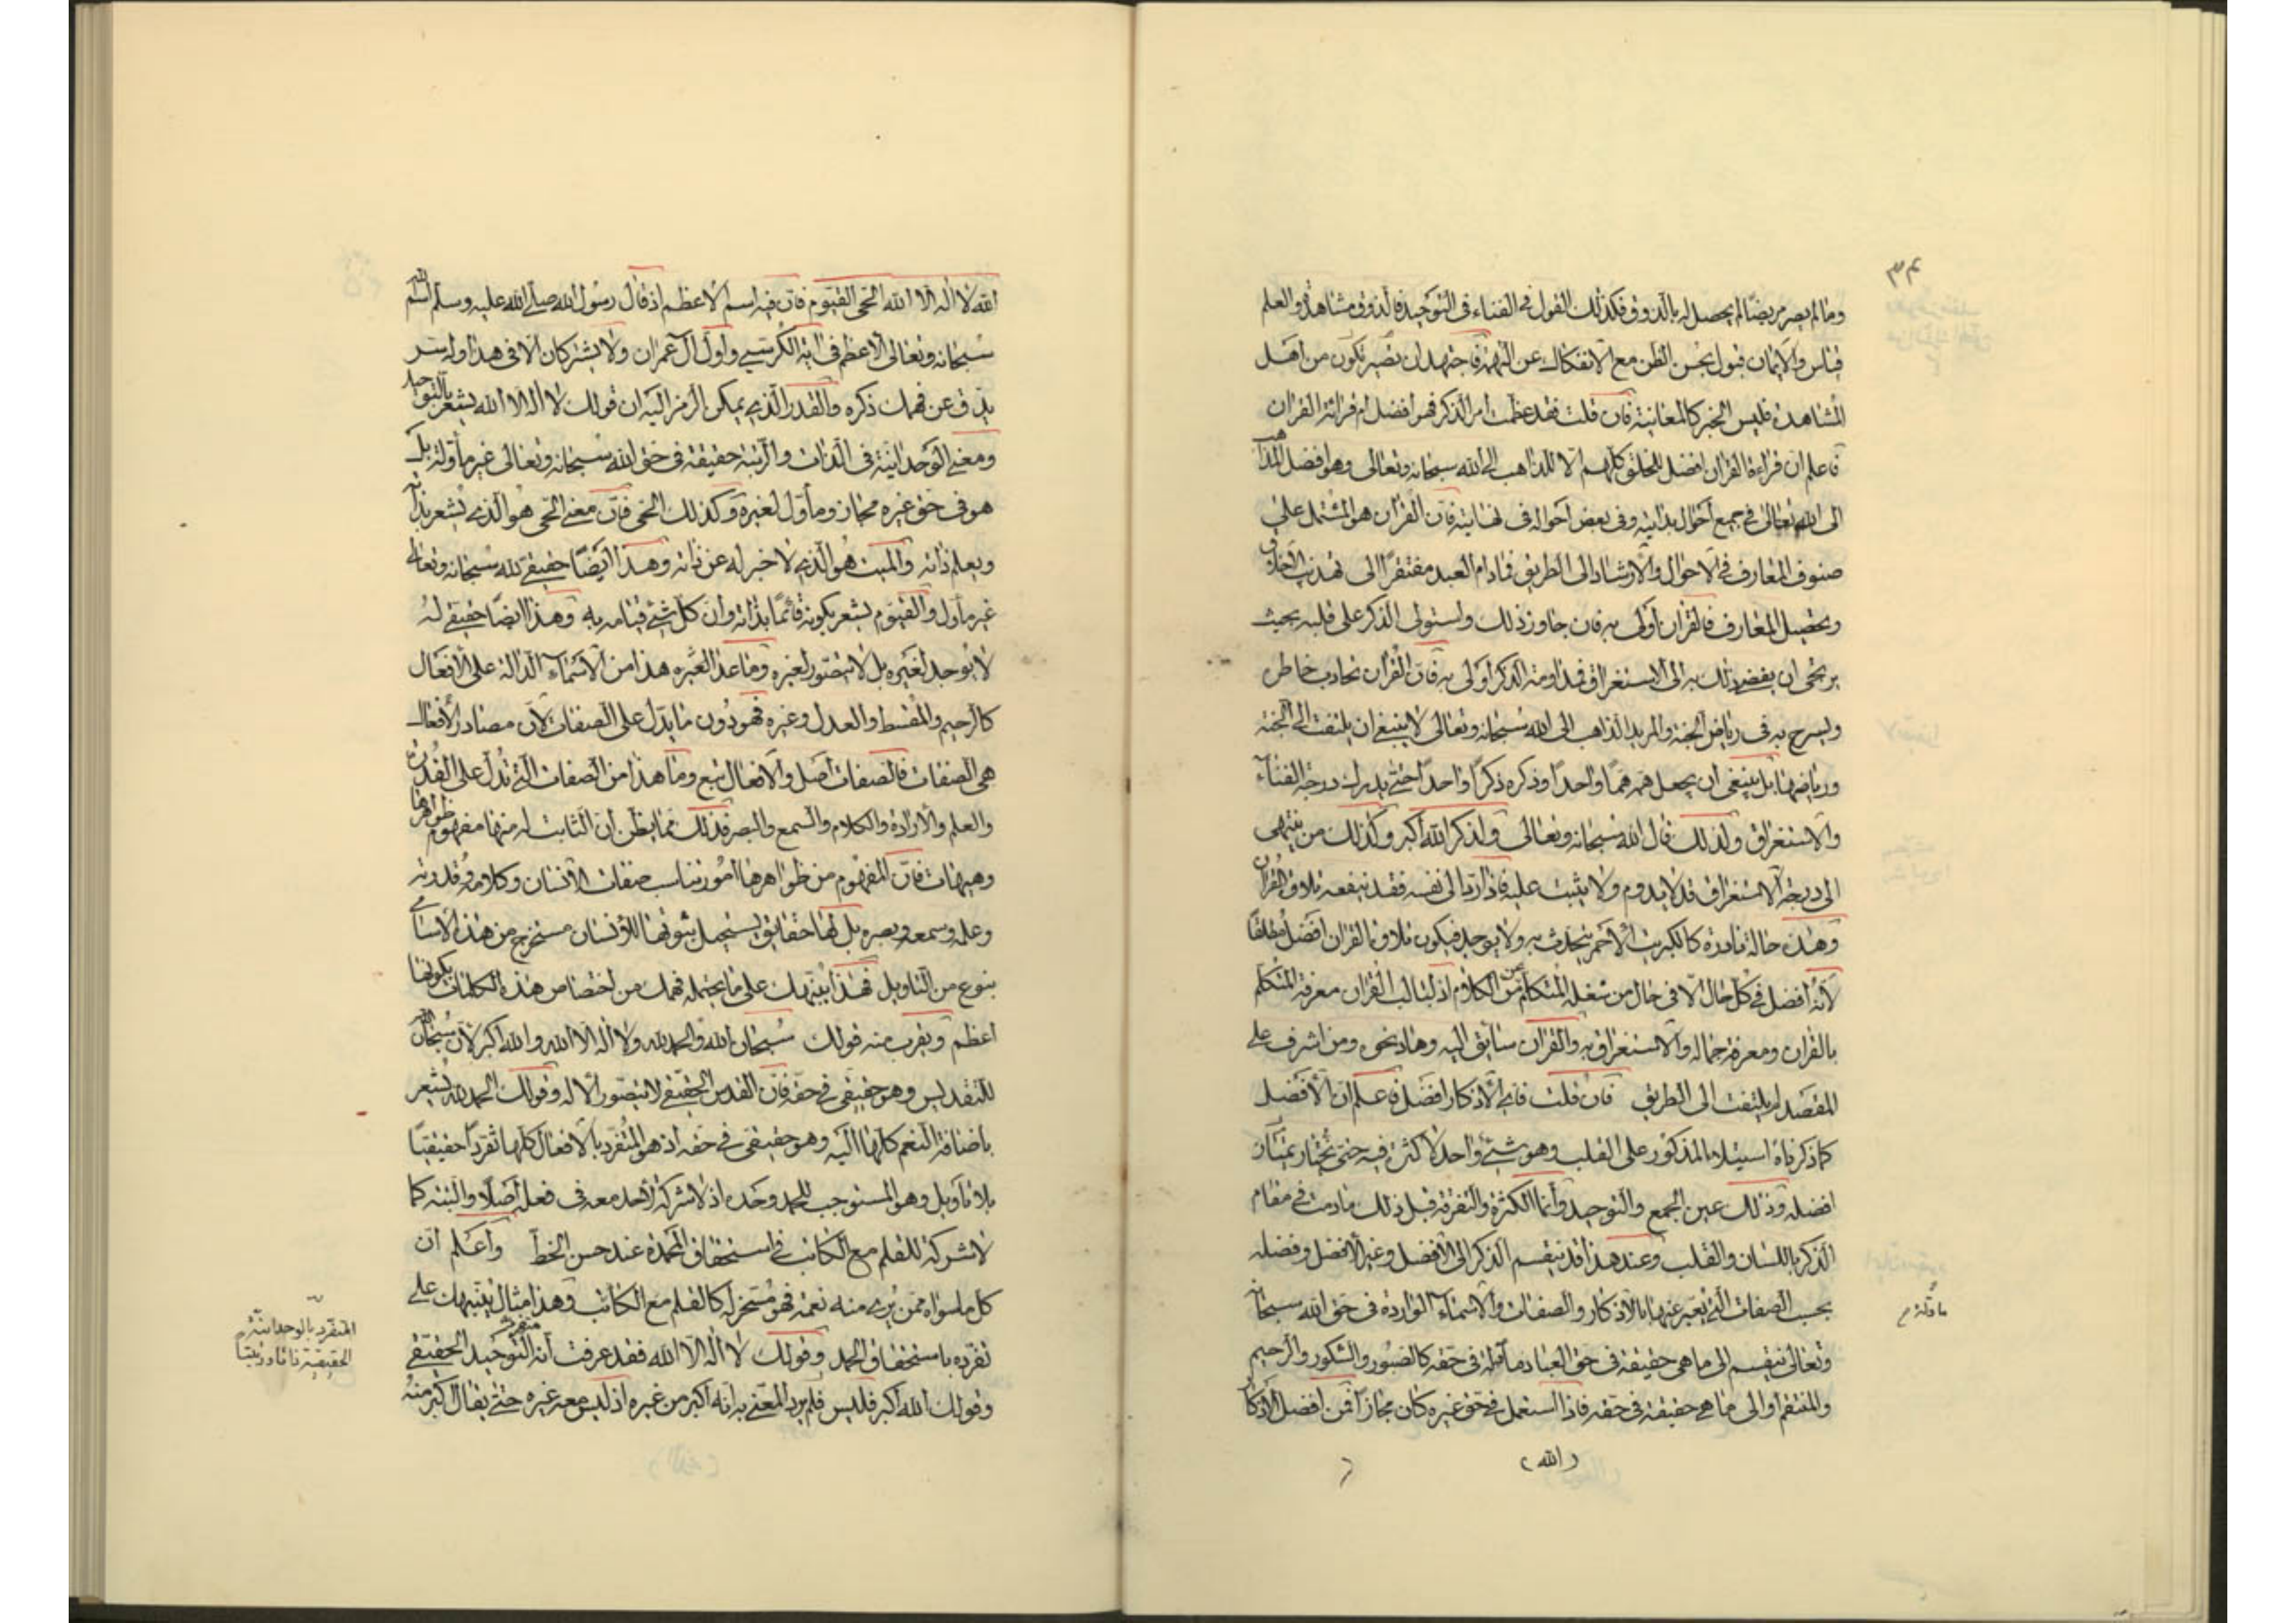 وما لم يصر مريضا لم يحصل له بالذوق فكذلك القول فى الفناء فى التوحيد فالذوق مشاهدة والعلم
قياس والايمان قبول بحسن الظن مع الانفكاك عن التهمة فاجتهد ان تصير تكون من اهل
المشاهدة فليس الخبر كالمعاينة فان قلت فقد عظمت امر الذكر فهو افضل ام قرائة القران
فاعلم ان قراءة القران افضل للخلق كلهم الا للذاهب الى الله سبحانه وتعالى وهو افضل للذاهب
الى الله تعالى فى جميع احوال بدايته وفى بعض احواله فى نهايته فان القران هو المشتمل على
صنوف المعارف فى الاحوال والارشاد الى الطريق فمادام العبد مفتقرا الى تهذيب الاخلاق
وتحصيل المعارف فالقران اولى به فان جاوز ذلك واستولى الذكر على قلبه بحيث
يرتجى ان يفضى ذلك به الى الاستغراق فمداومة الذكر اولى به فان القران يجاذب خاطره
ويسرح به فى رياض الجنة والمريد الذاهب الى الله سبحانه وتعالى لا ينبغى ان يلتفت الى الجنة
ورياضها بل ينبغى ان يجعل همه هما واحدا وذكره ذكرا واحدا حتى يدرك درجة الفناء
والاستغراق ولذلك قال الله سبحانه وتعالى ولذكر الله اكبر وكذلك من ينتهى
الى درجة الاستغراق قد لا يدوم ولا يثبت عليه فاذا رد الى نفسه فقد ينفعه تلاوة القران
وهذه حالة نادرة كالكبريت الاحمر يتحدث به ولا يوجد فيكون تلاوة القران افضل مطلقا
لانه افضل فى كل حال الا فى حال من شغله المتكلم عن الكلام اذ لباب القران معرفة المتكلم
بالقران ومعرفة جماله والاستغراق به والقران سائق اليه وهاد نحوه ومن اشرف على
المقصد لم يلتفت الى الطريق فان قلت فاى الاذكار افضل فاعلم ان الافضل
كما ذكرناه استيلاء المذكور على القلب وهو شئ واحد لا كثرة فيه حتى تختار
افضله وذلك عين الجمع والتوحيد وانما الكثرة والتفرقة قبل ذلك مادمت فى مقام
الذكر باللسان والقلب وعند هذا قد ينقسم الذكر الى الافضل وغير الافضل وفضله
بحسب الصفات التى يعبر عنها بالاذكار والصفات والاسماء الواردة فى حق الله سبحانه
وتعالى تنقسم الى ما هى حقيقة فى حق العباد مأولة فى حقه كالصبور والشكور والرحيم
والمنتقم والى ما هى حقيقة فى حقه فاذا استعمل فى حق غيره كان مجازا فمن افضل الاذكار
مادلة م
(الله)
الله لا اله الا الله الحى القيوم فان فيه اسم الاعظم اذ قال رسول الله صلى الله عليه وسلم اسم الله
سبحانه وتعالى الاعظم فى اية الكرسى واول ال عمران ولا يشتركان الا فى هذا وله سر
يدق عن فهمك ذكره والقدر الذى يمكن الرمز اليه ان قولك لا اله الا الله يشعر بالتوحيد
ومعنى الوحدانية فى الذات والرتبة حقيقة فى حق الله سبحانه وتعالى غير مأولة بل
هو فى حق غيره مجاز ومأول لغيره وكذلك الحى فان معنى الحى هو الذى يشعر بذاته
ويعلم ذاته والميت هو الذى لا خبر له عن ذاته وهذا ايضا حقيقى لله سبحانه وتعالى
غير مأول والقيوم يشعر بكونه قائما بذاته وان كل شئ قيامه به وهذا ايضا حقيقى له
لا يوجد لغيره بل لا يتصور لغيره وما عدا هذا من الاسماء الدالة على الافعال
كالرحيم والمقسط والعدل وغيره فهو دون ما يدل على الصفات لان مصادر الافعال
هى الصفات فالصفات اصل والافعال تبع وما هذا من الصفات التى تدل على القدرة
والعلم والارادة والكلام والسمع والبصر فذلك مما يظن ان الثابت له منها مفهوم ظواهرها
وهيهات فان المفهوم من ظواهرها امور تناسب صفات الانسان وكلامه وقدرته
وعلمه وسمعه وبصره بل لها حقايق يستحيل ثبوتها للانسان مستخرج من هذه الاسامى
بنوع من التاويل فهذا ينبهك على ما يحتمله فهمك من اختصاص هذه الكلمات بكونها
اعظم ويقرب منه قولك سبحان الله والحمد لله ولا اله الا الله والله اكبر لان سبحان الله
للتقديس وهو حقيقى فى حقه فان القدس الحقيقى لا يتصور الا له وقولك الحمد لله يشعر
باضافة النعم كلها اليه وهو حقيقى فى حقه اذ هو المتفرد بالافعال كلها تفردا حقيقيا
بلا تاويل وهو المستوجب للحمد وحده اذ لا شركة لاحد معه فى فعله اصلا والبتة كما
لا شركة للقلم مع الكاتب فى استحقاق المحمدة عند حسن الخط واعلم ان
كل ما سواه ممن يرى منه نعمة فهو مسخر له كالقلم مع الكاتب وهذا مثال ينبهك على
تفرده باستحقاق الحمد وقولك لا اله الا الله فقد عرفت انه التوحيد الحقيقى
وقولك الله اكبر فليس المعنى به انه اكبر من غيره اذ ليس معه غيره حتى يقال اكبر منه
المتفرد بالوحدانية م
الحقيقية